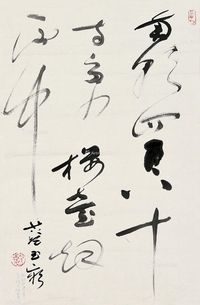 南朝四百八十
寺多少樓臺烟
雨中